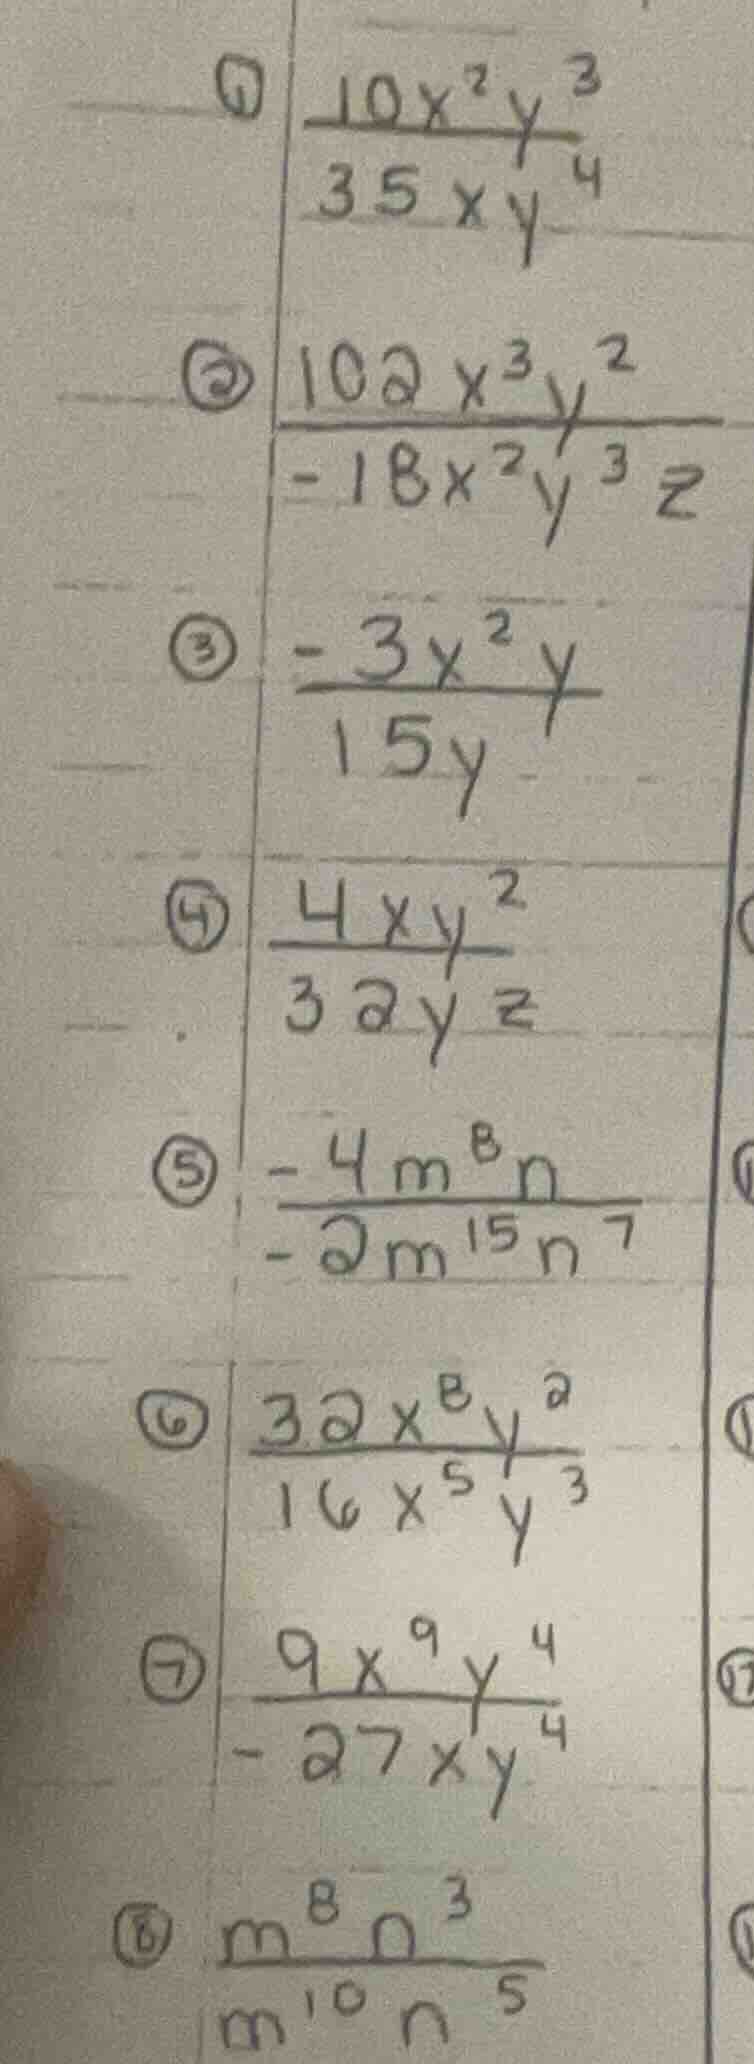 ① 10x²y³
35xy⁴
② 102x³y²
-18x²y³z
③ -3x²y
15y
④ 4xy²
32yz
⑤ -4m⁸n
-2m¹⁵n⁷
⑥ 32x⁸y²
16x⁵y³
⑦ 9x⁹y⁴
-27xy⁴
⑧ m⁸n³
m¹⁰n⁵